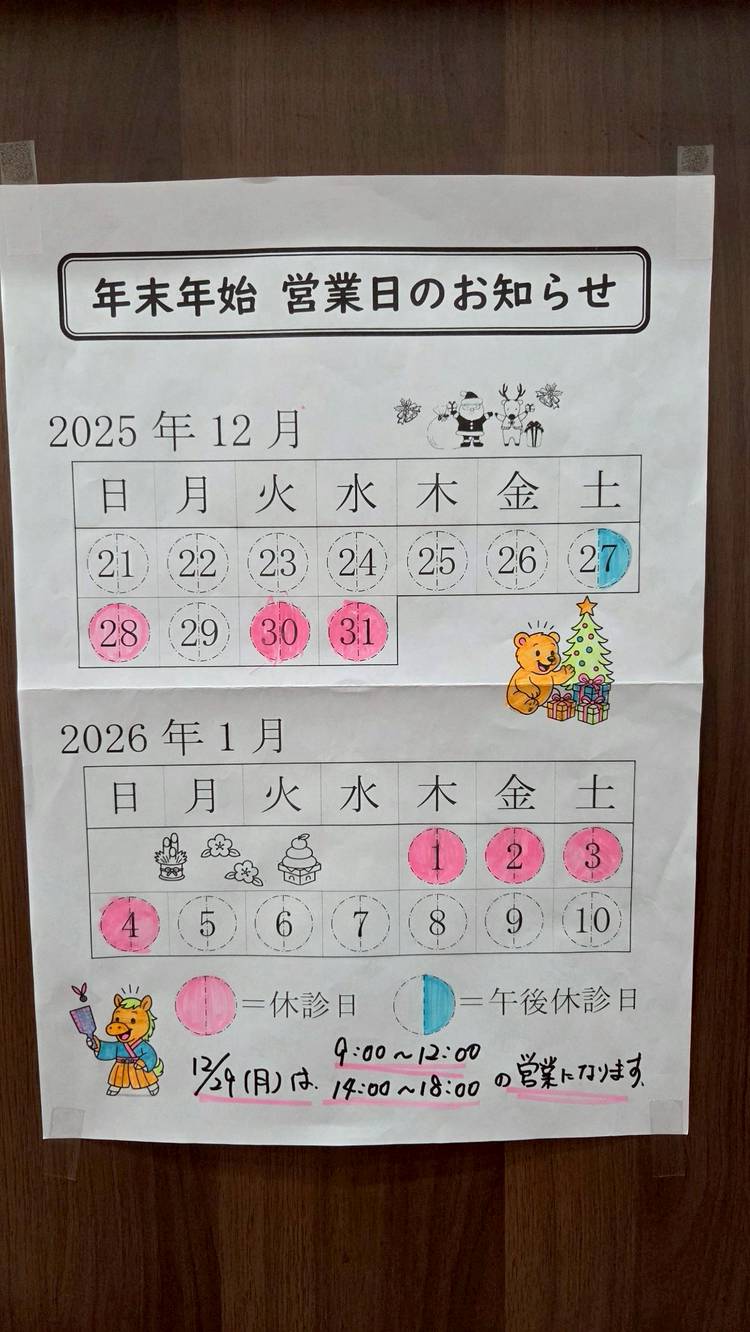 年末年始 営業日のお知らせ
2025年12月
日 月 火 水 木 金 土
21 22 23 24 25 26 27
28 29 30 31
2026年1月
日 月 火 水 木 金 土
1 2 3
4 5 6 7 8 9 10
=休診日 =午後休診日
12/29(月)は、9:00~12:00
14:00~18:00の営業になります。